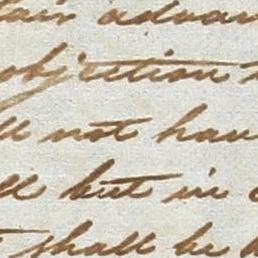 advan
objection
ll not hav
ll but in
shall be